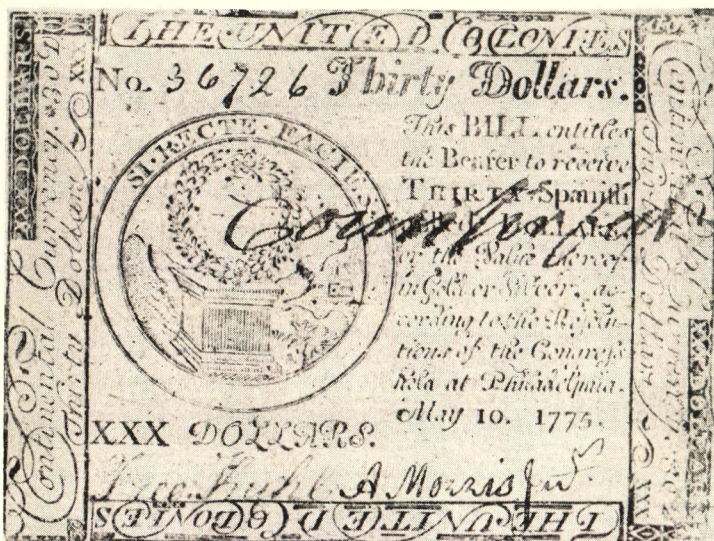 THE UNITED COLONIES
No. 36726 Thirty Dollars.
This BILL entitles
the Bearer to receive
THIRTY Spanish
milled DOLLARS,
or the Value thereof
in Gold or Silver, ac-
cording to the Resolu-
tions of the Congress
held at Philadelphia.
May 10. 1775.
SI·RECTE·FACIES
Counterfeit
XXX DOLLARS.
A Morris Junr
XXX DOLLARS
Continental Currency
Thirty Dollars XXX
Continental Currency
THE UNITED COLONIES